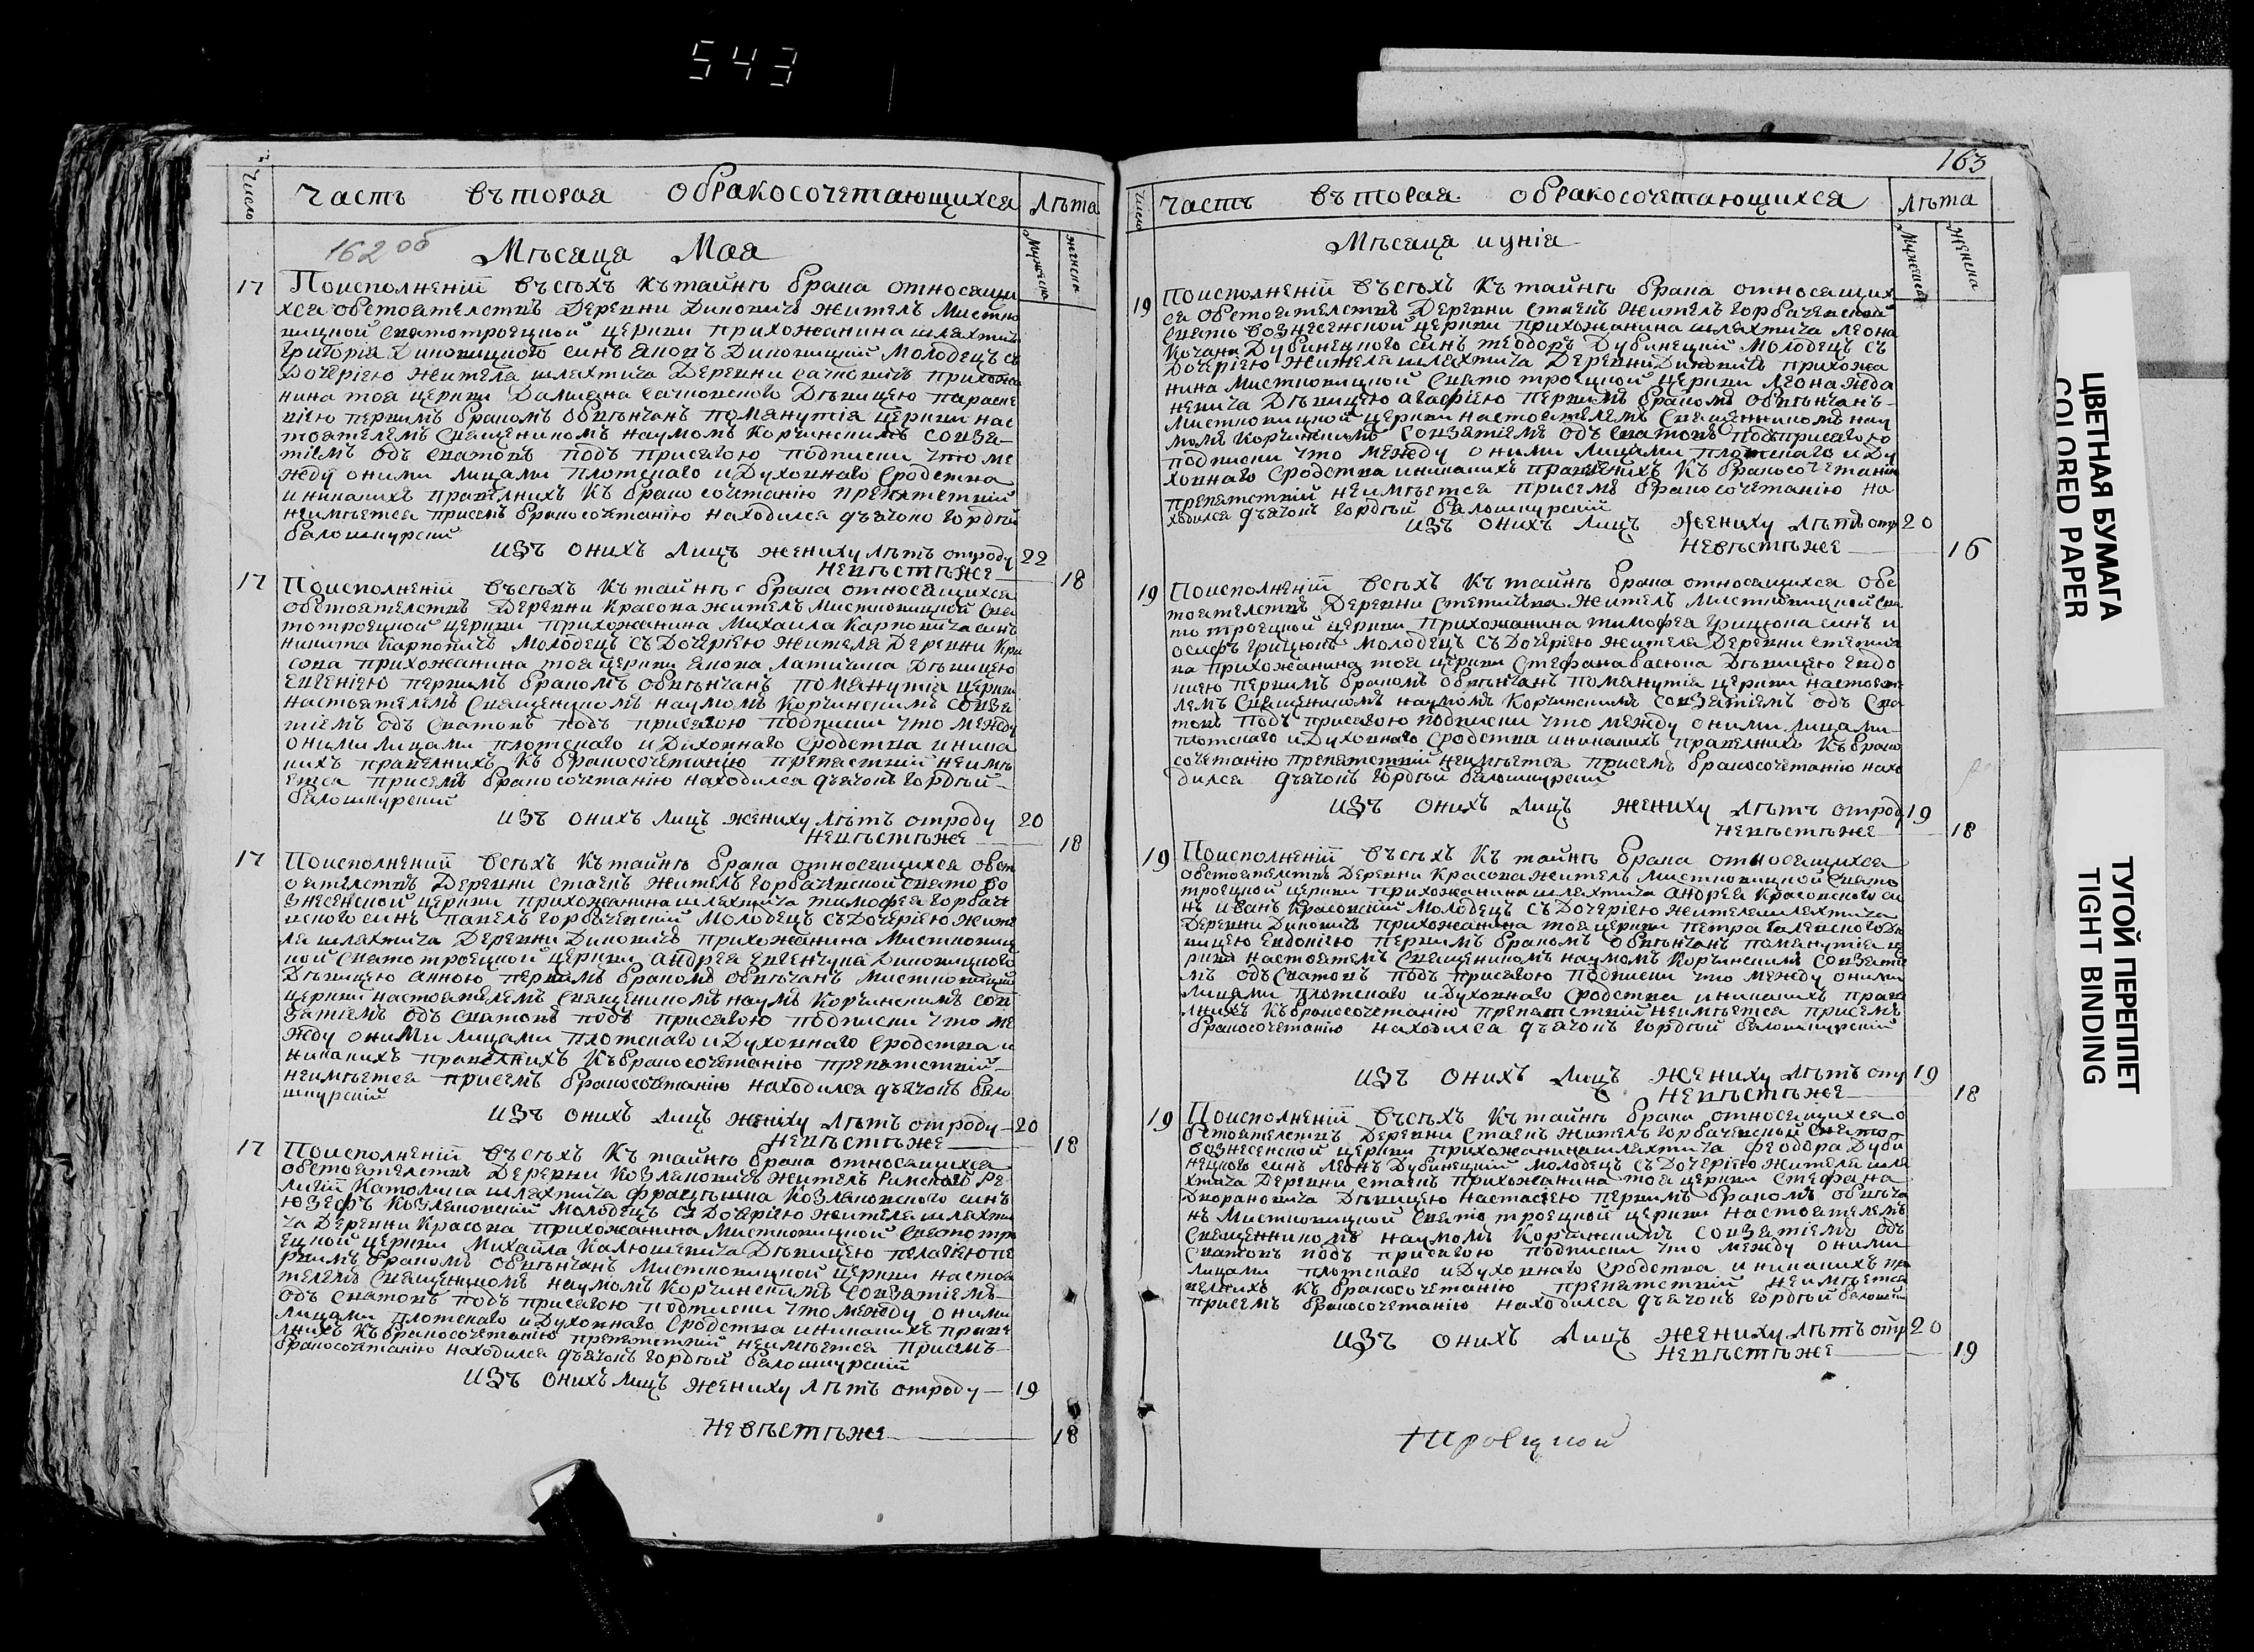 543
Число
Часть въторая обракосочетающихся
Лѣта
162 об
Мѣсаца Мая
Мужеска
женска
17 Поисполненій въсѣхъ Кътайнѣ брака относящи
хся обстоятелствъ Деревни Диковичъ житель Мистко
вицкой святотроецкой церкви прихожанина шляхтича
Григорія Диковицкого синъ Яковъ Диковицкій Молодецъ съ
Дочерією жителя шляхтича Деревни сачковичъ прихожа
нина тоя церкви Дамияна сачковского Дѣвицею параске
вією первимъ бракомъ обвѣнчанъ помянутія церкви нас
тоятелемъ Священикомъ наумомъ Корчинскимъ совзя-
тіемъ одъ сватовъ подъ присягою подписки что ме
жду оними лицами плотскаго иДухонаго сродства
иникакихъ правѣлнихъ Къ бракосочетанію препятствій
неимѣется присемъ бракосочетанію находился дъячокъ гордѣй
балошкурский
изъ онихъ Лицъ жениху лѣтъ отроду 22
невѣстѣже 18
17 Поисполненій въсѣхъ Къ тайнѣ брака относящихся
обстоятелствъ Деревни Красова житель Мистковицкой Свя
тотроецкой церкви прихожанина Михаила Карповича синъ
никита Карповичъ Молодецъ съ Дочерією жителя Деревни Кра
сова прихожанина тоя церкви якова латишa Дѣвицею
Евгенією первимъ бракомъ обвѣнчанъ помянутія церкви
настоятелемъ Священикомъ наумомъ Корчинскимъ совзя
тіемъ одъ Сватовъ подъ присягою подписки что между
оними лицами плотскаго иДихонаго сродства иника
кихъ правелнихъ Къ бракосочетанію препятствій неимѣ
ется присемъ бракосочетанію находился дъячокъ гордѣй
балошкурский
изъ онихъ Лицъ жениху лѣтъ отроду 20
невѣстѣже 18
17 Поисполнений всѣхъ Кътайнѣ брака относящихся обст
оятелствъ Деревни стаевъ житель горбачевской свято во
знесенской церкви прихожанина шляхтича тимофея горбаче
вского синъ павелъ горбачевский Молодецъ съ Дочерією жите
ля шляхтича Деревни Диковичъ прихожанина Мистковиц
кой святотроецкой церкви андрея Евгенчука Диковицкого
Дѣвицею анною первимъ бракомъ обвѣчанъ мистковицкой
церкви настоятелемъ Священикомъ наумъ Корчинскимъ сов
зятіемъ одъ сватовъ подъ присягою подписки что ме
жду оними лицами плотскаго иДухонаго сродства и
никакихъ правелнихъ Къбракосочетанію препятствій
неимѣется присемъ бракосочетанію находился дъячокъ бало
шкурский
изъ онихъ Лицъ жениху лѣтъ отроду 20
невѣстѣже 18
17 Поисполненій въсѣхъ Къ тайнѣ брака относящихся
обстоятелствъ Деревни Козляковичъ житель Римской Ре
лигий Католика шляхтича францѣшка Козляковского синъ
юзефъ Козляковский Молодецъ съ Дочерією жителя шляхти
ча Деревни Красова прихожанина Мистковицкой Святотро
ецкой церкви Михаила Калюшевича Дѣвицею пелагією пе
рвимъ бракомъ обвѣнчанъ Мистковицкой церкви настоя
телемъ Священикомъ наумомъ Корчинскимъ совзятіемъ
одъ сватовъ подъ присягою подписки что между оними
лицами плотскаго иДухонаго сродства иникакихъ праве
лнихъ Къбракосочетанію препятствий неимѣется присемъ
бракосочетанію находился дъячокъ гордѣй балошкурскій
изъ онихъ Лицъ жениху лѣтъ отроду 19
невѣстѣже 18
163
Число
Часть въторая обракосочетающихся
Лѣта
Мѣсаца иунія
Мужеска
Женска
19 Поисполненій въсѣхъ Къ тайнѣ брака относящих
ся обстоятелствъ Деревни стаевъ житель горбачевской
свято вознесенской церкви прихожанина шляхтича леона
Кочана Дубинецкого синъ теодоръ Дубинецкий Молодецъ съ
Дочерією жителя шляхтича Деревни Диковичъ прихожа
нина Мистковицкой Свято троецкой церкви леона жда
невича Дѣвицею агафією первимъ бракомъ обвѣнчанъ
Мистковицкой церкви настоятелемъ Священникомъ нау
момъ Корчинкимъ совзятіемъ одъ Сватовъ подъприсягою
подписки что между оними лицами плотскаго иДу
хонаго сродства иникакихъ правелнихъ Къ бракосочетанію
препятствій неимѣется присемъ бракосочетанію на
ходился дъячокъ гордѣй балошкурский
изъ онихъ Лицъ жениху лѣтъ отр 20
невѣстѣже 16
19 Поисполненій всѣхъ Къ тайнѣ брака относящихся обс
тоятелствъ Деревни Стетичва житель Мистковицкой Свя
то троецкой церкви прихожанина тимофея грицюка синъ и
осифъ грицюкъ молодецъ съ Дочерію жителя Деревни стетич
ва прихожанина тоя церкви Стефана басюка Дѣвицею Евдо
кіею первимъ бракомъ обвѣнчанъ помянутія церкви настояте
лемъ Священикомъ наумомъ Корчинскимъ совзятіемъ одъ Сва
товъ подъ присягою подписки что между оними лицами
плотскаго иДухонаго сродства иникакихъ правелнихъ Къ брако
сочетанію препятствій неимѣется присемъ бракосочетанію нахо
дился дъячокъ гордѣй балошкурскій
изъ онихъ Лицъ жениху лѣтъ отрод 19
невѣстѣже 18
19 Поисполненій въсѣхъ Къ тайнѣ брака относящихся
обстоятелствъ Деревни Красова житель Мистковицкой Свято
троецкой церкви прихожанина шляхтича андрея Красовского си
нъ иванъ Красовский Молодецъ съ Дочерією жителя шляхтича
Деревни Диковичъ прихожанина тоя церкви петра галевского Дѣ
вицею Евдокією первимъ бракомъ обвѣнчанъ помянутія це
ркви настоятелемъ Священикомъ наумомъ Корчинскимъ совзяте
мъ одъ Сватовъ подъ присягою подписки что между оними
лицами плотскаго иДухонаго сродства иникакихъ праве
лнихъ Къбракосочетанію препятствій неимѣется присемъ
бракосочетанію находился дъячокъ гордѣй балошкурский
изъ онихъ Лицъ жениху лѣтъ отр 19
невѣстѣже 18
19 Поисполненій въсѣхъ Къ тайнѣ брака относящихся о
бстоятелствъ Деревни стаевъ житель горбачевской свято
вознесенской церкви прихожанина шляхтича феодора Дуби
нецкого синъ леонъ Дубинецкий молодецъ съ Дочерією жителя шля
хтича Деревни стаевъ прихожанина тоя церкви стефана
Дворановича Дѣвицею настасєю первимъ бракомъ обвѣнча
нъ Мистковицкой Свято троецкой церкви настоятелемъ
Священникомъ наумомъ Корчинскимъ совзятіемъ одъ
сватовъ подъ присягою подписки что между оними
лицами плотскаго иДухонаго сродства иникакихъ пра
велнихъ Къ бракосочетанію препятствій неимѣется
присемъ бракосочетанію находился дъячокъ гордѣй балошк
изъ онихъ Лицъ жениху лѣтъ отр 20
невѣстѣже 19
ЦВЕТНАЯ БУМАГА
COLORED PAPER
ТУГОЙ ПЕРЕПЛЕТ
TIGHT BINDING